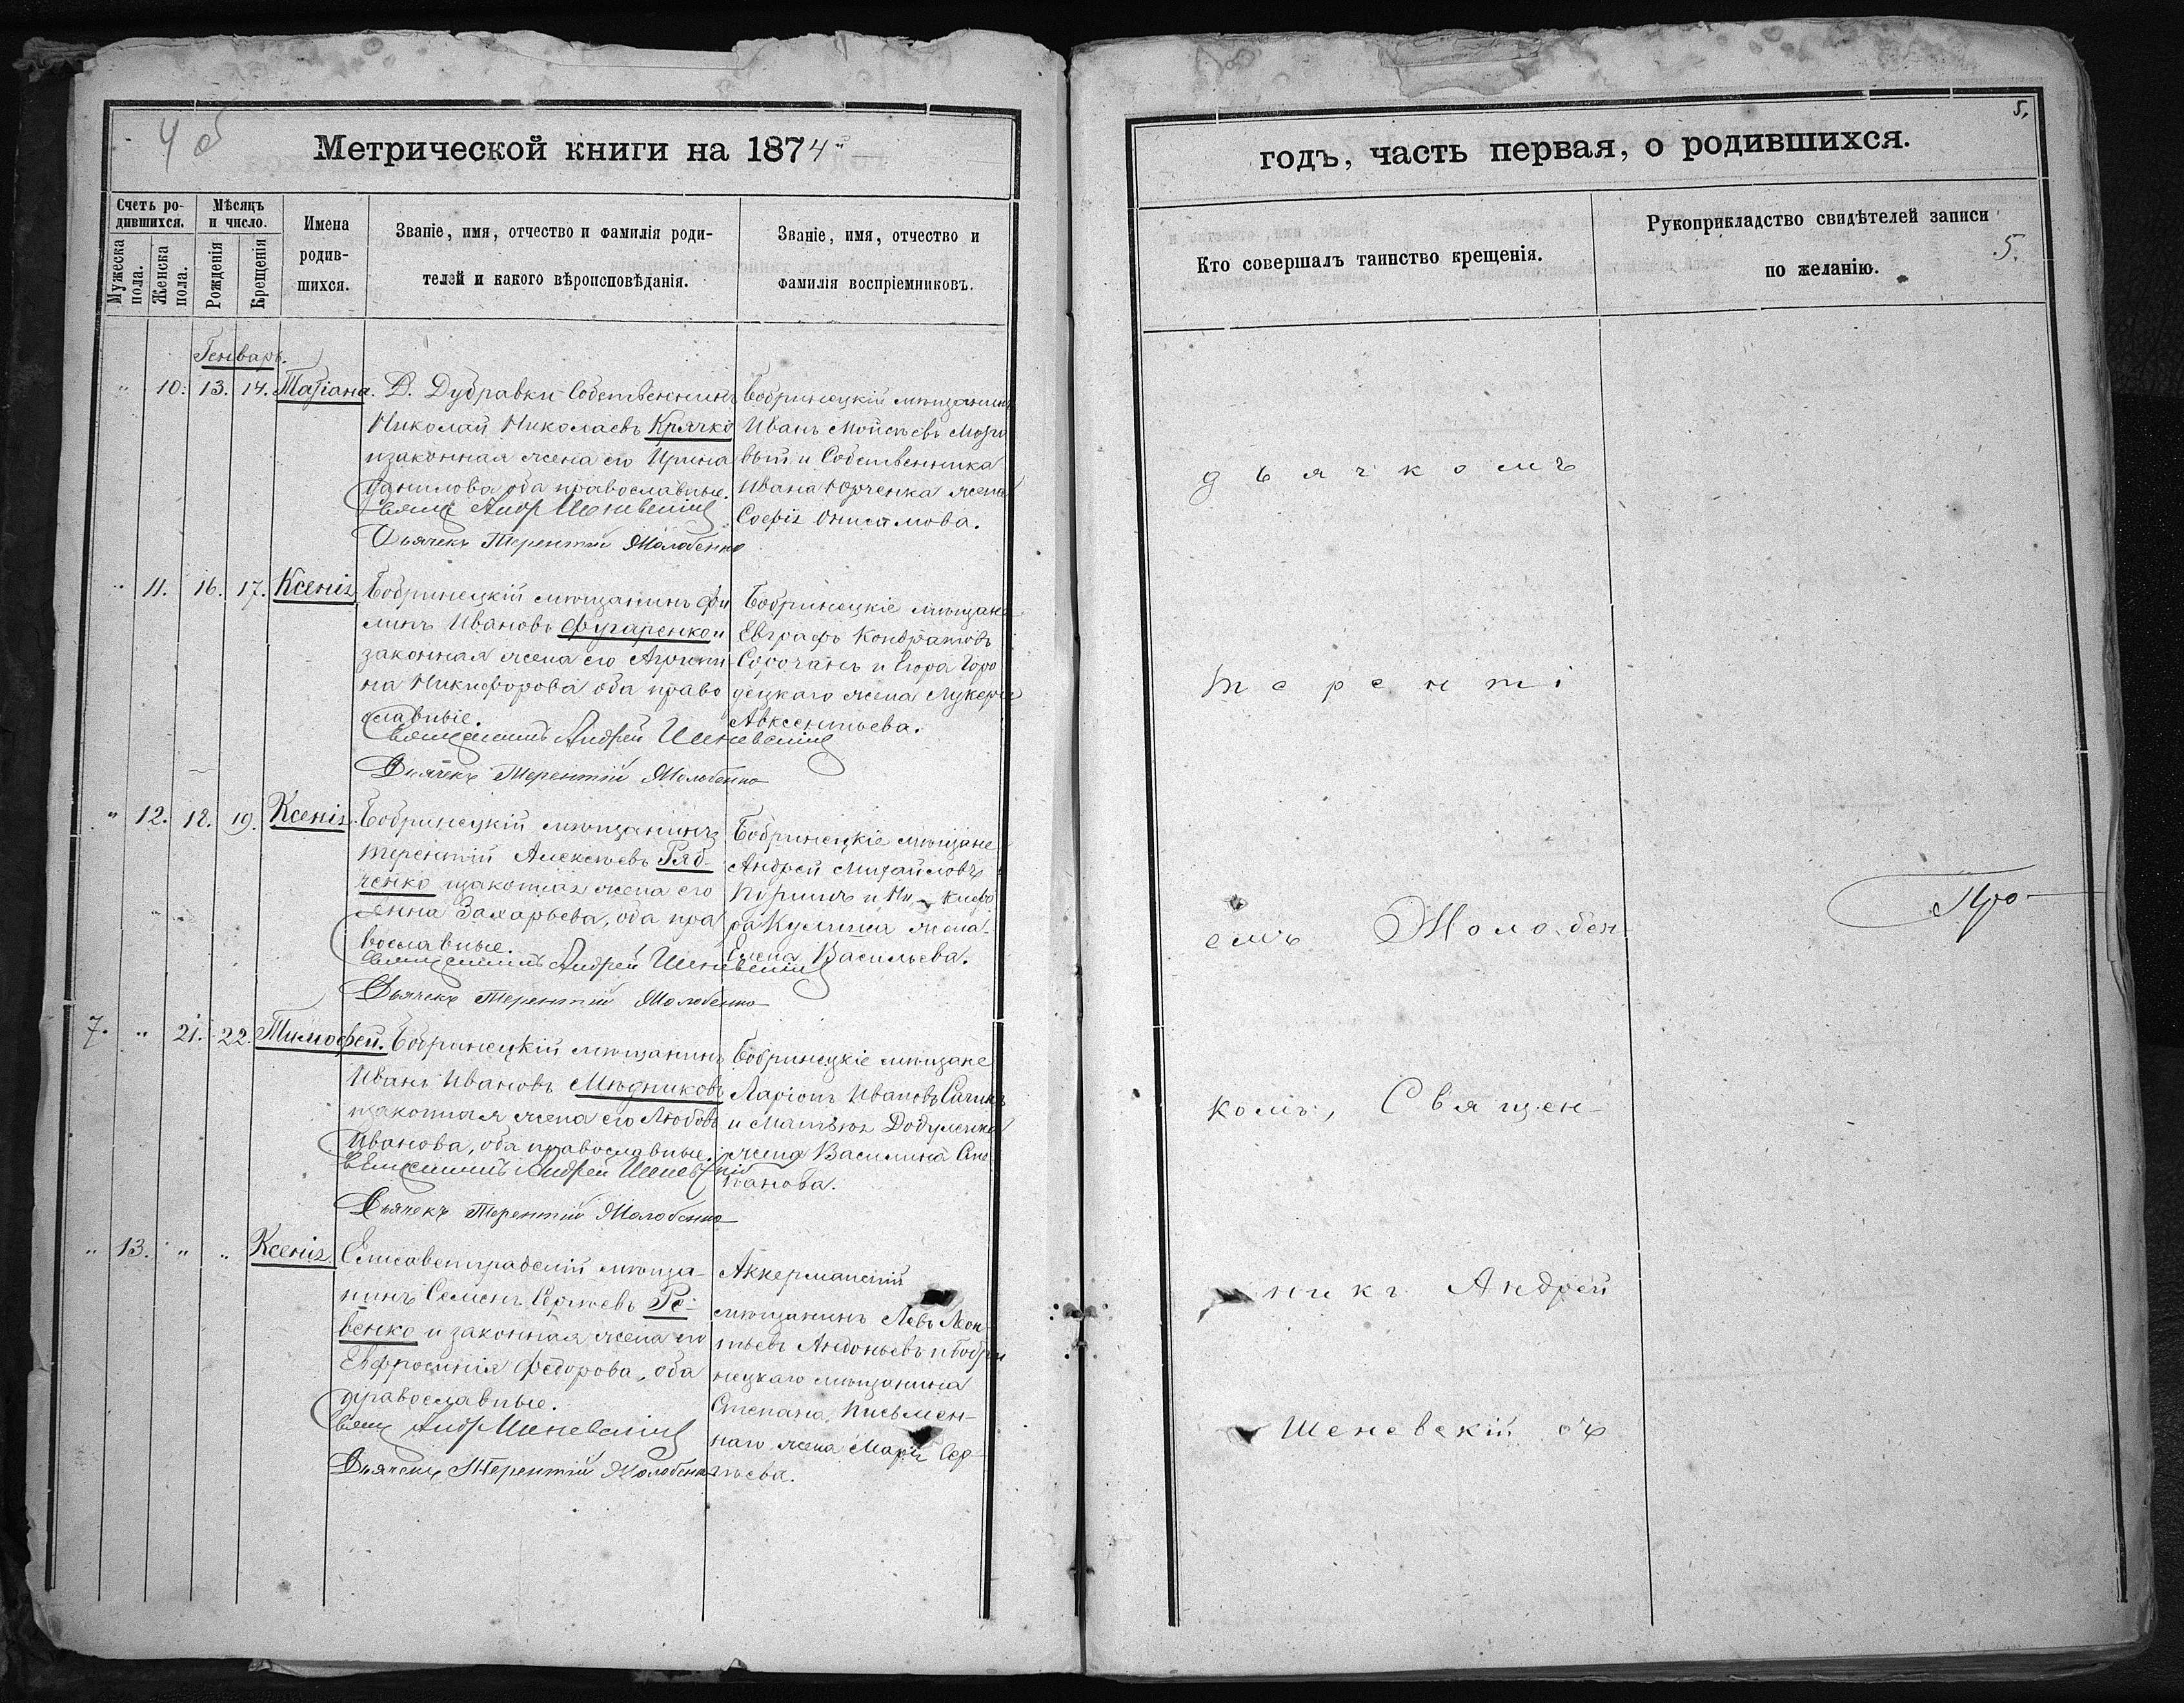 4 об
Метрической книги на 1874
Счетъ ро-
дившихся.
Мужеска пола.
Женска пола.
Мѣсяцъ
и число.
Рожденія
Крещенія
Имена
родив-
шихся.
Званіе, имя, отчество и фамилія роди-
телей и какого вѣроисповѣданія.
Званіе, имя, отчество и
фамилія воспріемниковъ.
Генварь.
" 10. 13. 14. Татіана.
Д. Дубравки Собственникъ
Николай Николаевъ Крячко
изаконная жена его Ирина
Данилова оба православные.
Свящ Андр Шеневскій
Дьячекъ Терентій Жолобенко
Бобринецкій мѣщанинъ
Иванъ Мойсѣевъ
и Собственника
Ивана Юрченка жена
Софія Онисимова.
" 11. 16. 17. Ксенія
Бобринецкій мѣщанинъ Фи
липъ Ивановъ Фугаренко и
законная жена его Агрипи
на Никифорова оба право
славные.
Священникъ Андрей Шеневскій
Дьячекъ Терентій Жолобенко
Бобринецкіе мѣщане
Евграфъ Кондратовъ
Сорочанъ и Горо
децкаго жена Лукерія
Авксентьева.
" 12. 18. 19. Ксенія.
Бобринецкій мѣщанинъ
Терентій Алексѣевъ Ряб-
ченко изаконная жена его
Анна Захарьева, оба пра
вославные.
Священникъ Андрей Шеневскій
Дьячекъ Терентій Жолобенко
Бобринецкіе мѣщане
Андрей Михайловъ
и Никифо
ра Кулиша жена
Елена Васильева.
7. " 21. 22. Тимофей.
Бобринецкій мѣщанинъ
Иванъ Ивановъ Мѣдниковъ
изаконная жена его Любовь
Иванова, оба православные.
Священникъ Андрей Шеневскій
Дьячекъ Терентій Жолобенко
Бобринецкіе мѣщане
Ларіонъ Ивановъ
и Матвѣя Додуленка
жена Василина Сте
панова.
" 13. " " Ксенія.
Елисаветградскій мѣща-
нинъ Семенъ Сергѣевъ Ре-
венко и законная жена его
Евфросинія Федорова, оба
православные.
Свящ Андр Шеневскій
Дьячекъ Терентій Жолобенко
Аккерманскій
мѣщанинъ Левъ Леон-
тьевъ Андоньевъ и Бобри
нецкаго мѣщанина
Степана Письмен-
наго жена Марія Сер-
гѣева.
5.
годъ, часть первая, о родившихся.
Кто совершалъ таинство крещенія.
Рукоприкладство свидѣтелей записи
по желанію.
5.
дьячкомъ
Теренті
емъ Жолобен
комъ, Священ-
никъ Андрей
Шеневскій съ
Про-